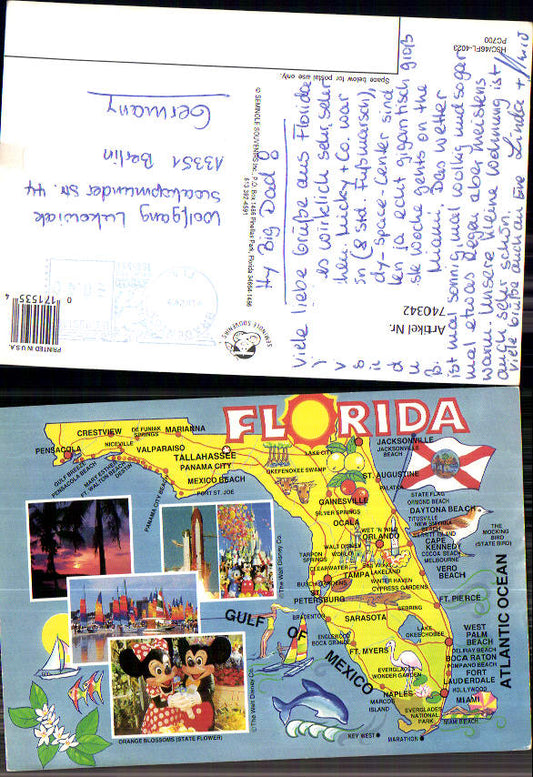 HSC/46FL-4023
PC700
Space below for postal use only.
© SEMINOLE SOUVENIRS Inc., P.O. Box 1466 Pinellas Park, Florida 34664-1466
SEMINOLE SOUVENIRS
Wolfgang
13351 Berlin
Germany
0 171535 4
PRINTED IN U.S.A.
Artikel Nr.
740342
Hy Big Dad
Viele liebe Grüße aus Florida
es wirklich sehr, sehr
Micky + Co. war
(8 Std. Fußmarsch),
dy-Space-Center sind
ja echt gigantisch groß
Woche gehts on the
Miami. Das Wetter
ist mal sonnig mal wolkig und sogar
mal etwas Regen aber meistens
warm. Unsere kleine Wohnung ist
auch sehr schön.
Viele Grüße auch an Linda +
FLORIDA
CRESTVIEW
DE FUNIAK SPRINGS
MARIANNA
PENSACOLA
NICEVILLE
VALPARAISO
TALLAHASSEE
GULF BREEZE
PENSACOLA BEACH
MARY ESTHER
FT. WALTON BEACH
DESTIN
PANAMA CITY
PANAMA CITY BEACH
MEXICO BEACH
PORT ST. JOE
LAKE CITY
OKEFENOKEE SWAMP
JACKSONVILLE
JACKSONVILLE BEACH
ST. AUGUSTINE
PALATKA
STATE FLAG
GAINESVILLE
SILVER SPRINGS
OCALA
ORMOND BEACH
DAYTONA BEACH
TITUSVILLE
NEW SMYRNA BEACH
MERRITT ISLAND
CAPE KENNEDY
COCOA BEACH
MELBOURNE
THE MOCKING BIRD (STATE BIRD)
WET 'N WILD
ORLANDO
WALT DISNEY WORLD
TARPON SPRINGS
CLEARWATER
LAKELAND
BUSCH GARDENS
TAMPA
WINTER HAVEN
CYPRESS GARDENS
VERO BEACH
ST. PETERSBURG
FT. PIERCE
BRADENTON
SEBRING
SARASOTA
ENGLEWOOD
BOCA GRANDE
LAKE OKEECHOBEE
WEST PALM BEACH
DELRAY BEACH
BOCA RATON
POMPANO BEACH
FORT LAUDERDALE
HOLLYWOOD
MIAMI
MIAMI BEACH
FT. MYERS
EVERGLADES WONDER GARDEN
NAPLES
MARCOS ISLAND
EVERGLADES NATIONAL PARK
KEY WEST
MARATHON
GULF OF MEXICO
ATLANTIC OCEAN
©The Walt Disney Co.
©The Walt Disney Co.
ORANGE BLOSSOMS (STATE FLOWER)